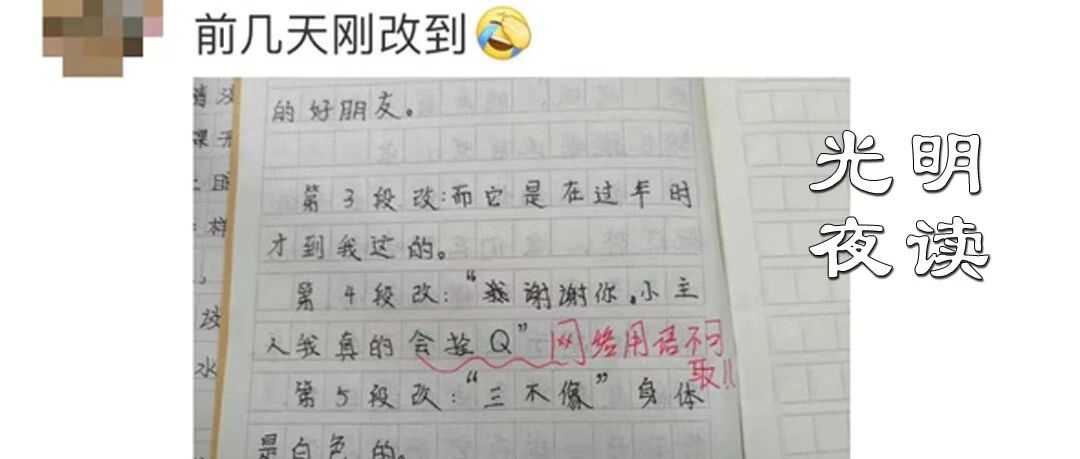 前几天刚改到
的好朋友。
第3段改:而它是在过年时
才到我这的。
第4段改:“谢谢你,小主
人我真的会拴Q”网络用语不可
取!!
第5段改:“三不像”身体
是白色的。
样
水
光明
夜读